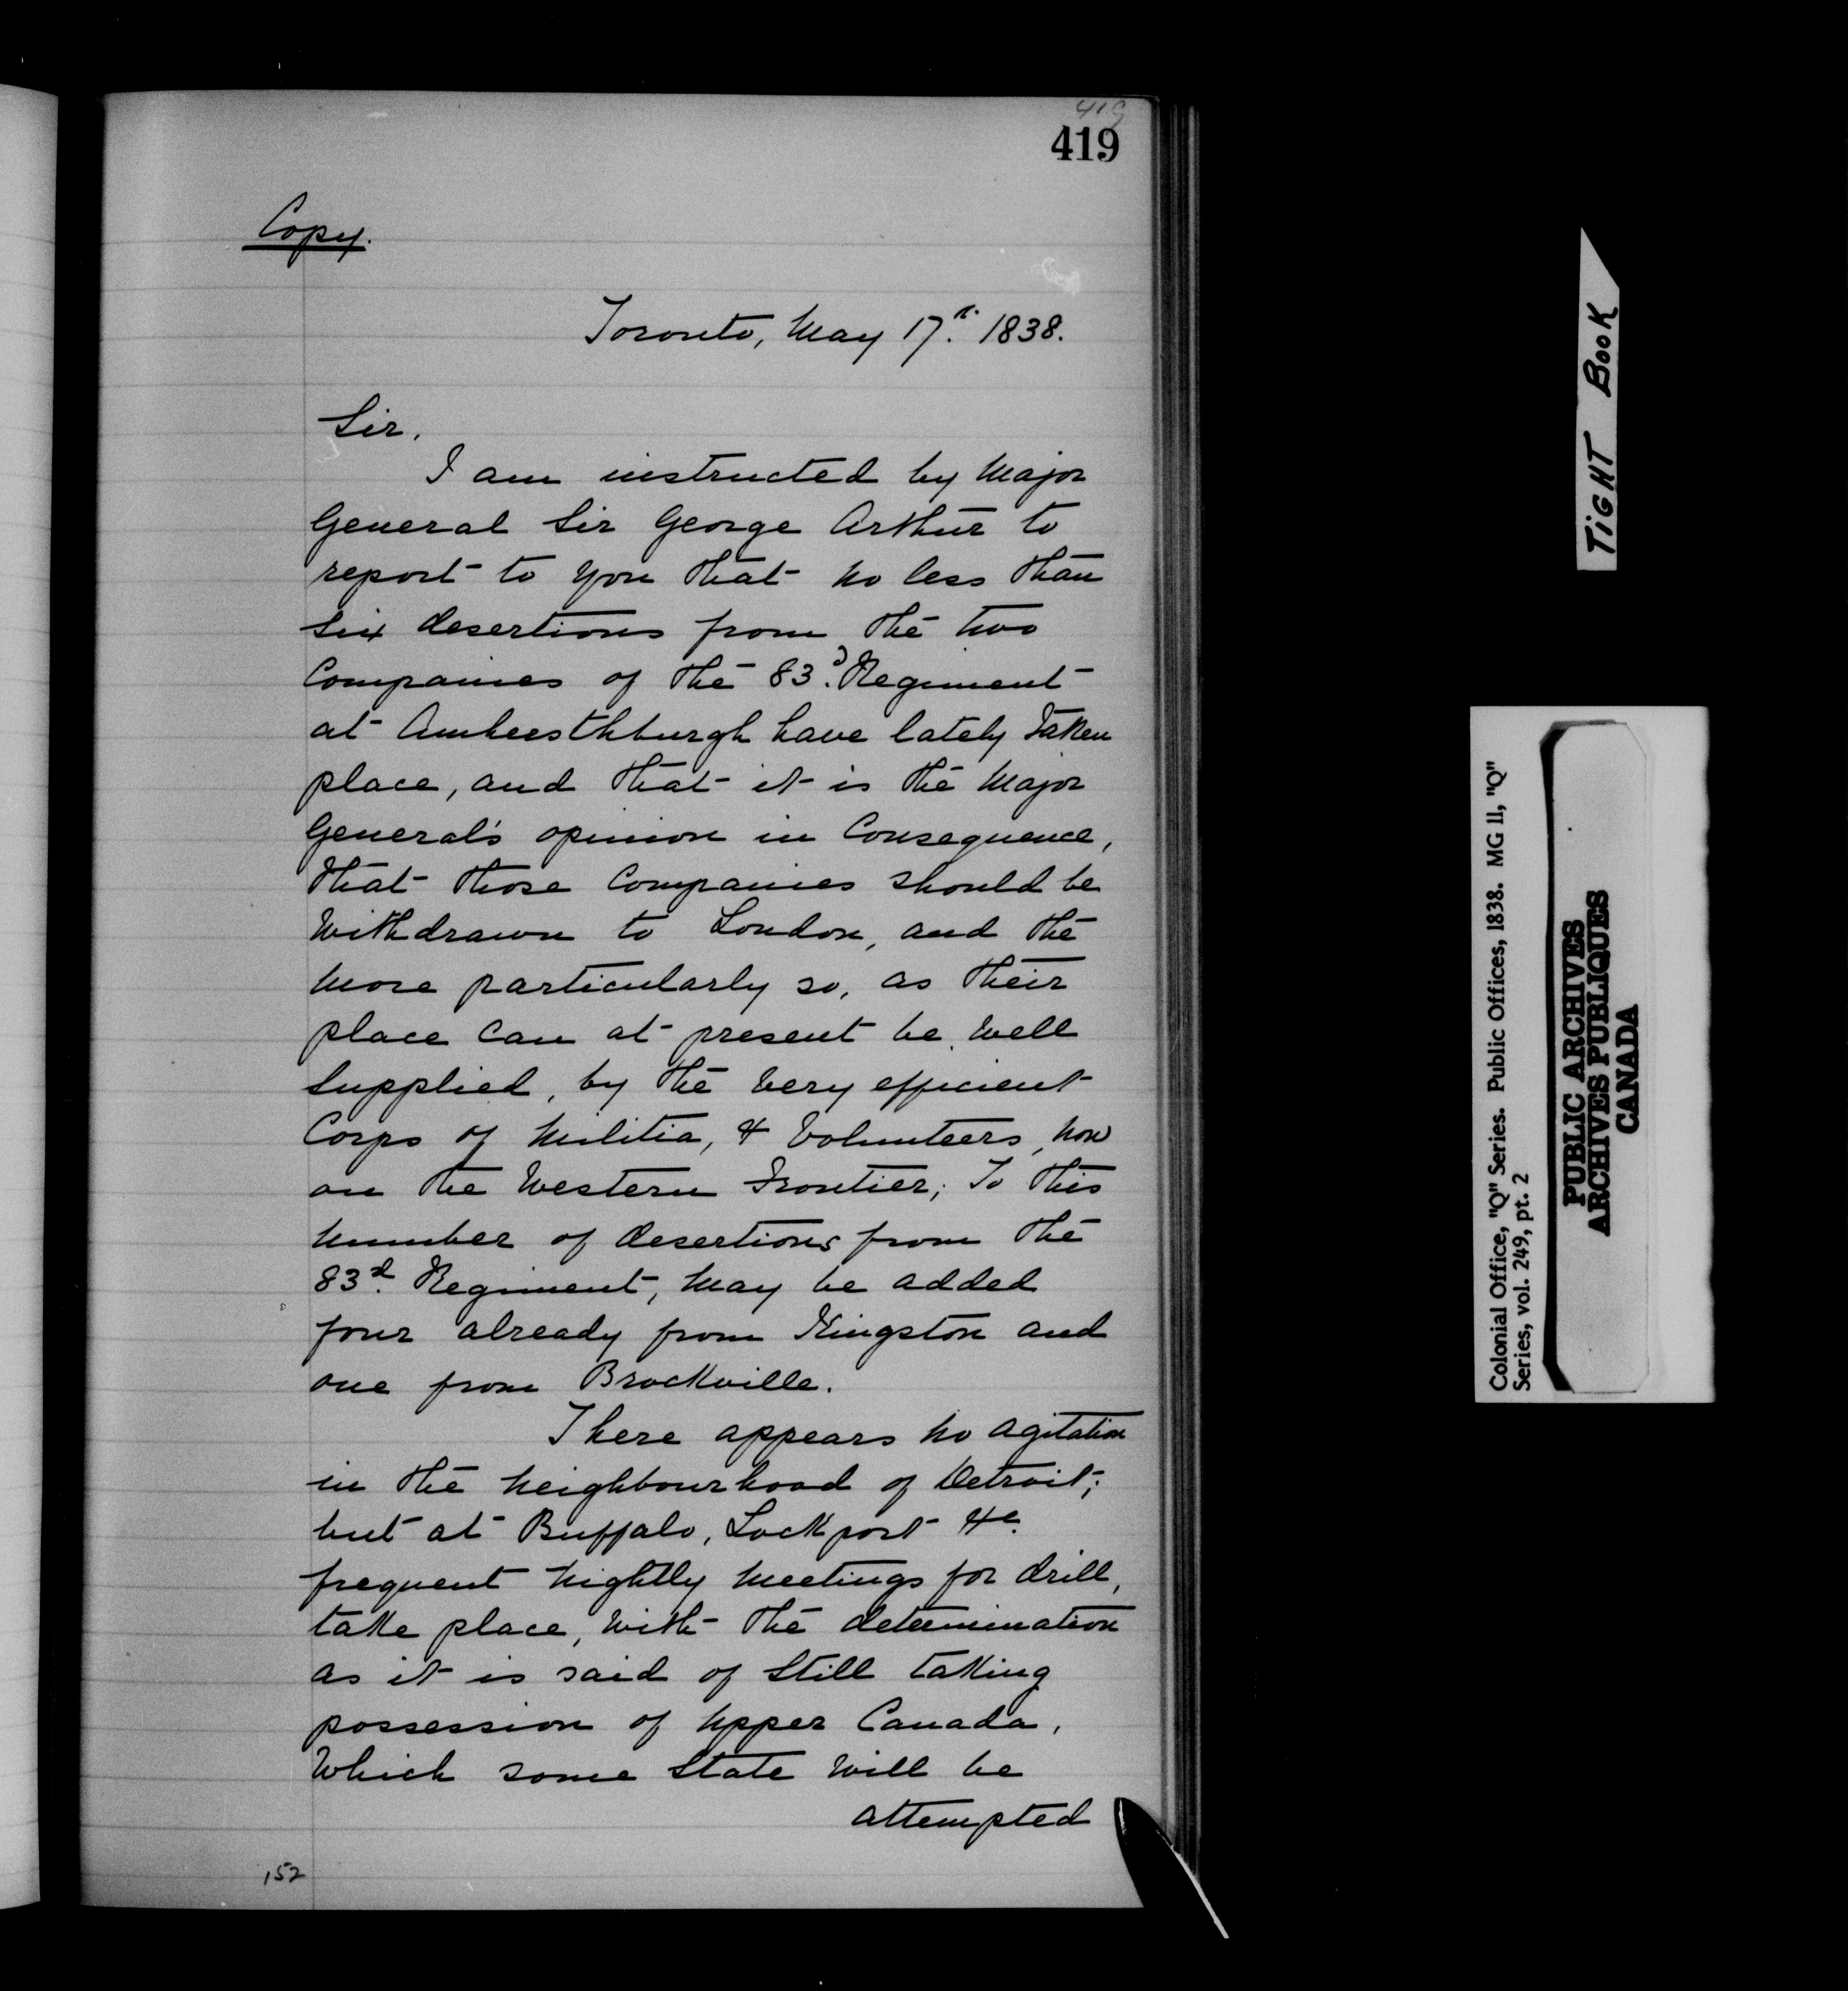 419
419
Copy.
Toronto, May 17th. 1838.
Sir,
I am instructed by Major
General Sir George Arthur to
report to you that no less than
six desertions from the two
Companies of the 83d. Regiment
at Amherstburgh have lately taken
place, and that it is the Major
General's opinion in Consequence,
that those Companies should be
withdrawn to London, and the
more particularly so, as their
place can at present be well
supplied, by the very efficient
Corps of Militia, & Volunteers, now
on the Western Frontier; To this
number of desertions from the
83d. Regiment, may be added
four already from Kingston and
one from Brockville.
There appears no agitation
in the neighbourhood of Detroit;
but at Buffalo, Lockport &c.
frequent nightly meetings for drill,
take place, with the determination
as it is said of still taking
possession of Upper Canada,
which some state will be
attempted
152
TIGHT BOOK
Colonial Office, "Q" Series. Public Offices, 1838. MG 11, "Q"
Series, vol. 249, pt. 2
PUBLIC ARCHIVES
ARCHIVES PUBLIQUES
CANADA